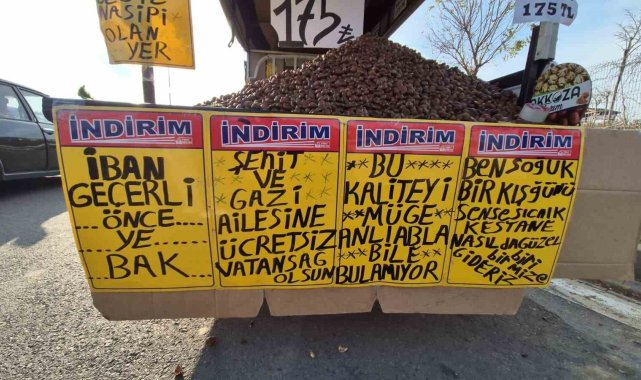 NASİPİ
OLAN
YER
175 TL
175TL
AKKOZA
İNDİRİM
İBAN
GEÇERLİ
ÖNCE
YE
BAK
İNDİRİM
ŞEHİT
VE
GAZİ
AİLESİNE
ÜCRETSİZ
VATANSAĞ
OLSUN
İNDİRİM
BU
KALİTEYİ
MÜGE
ANLI ABLA
BİLE
BULAMIYOR
İNDİRİM
BEN SOĞUK
BİR KIŞ GÜNÜ
SENSE SICAK
KESTANE
NASIL DA GÜZEL
GİDERİZ